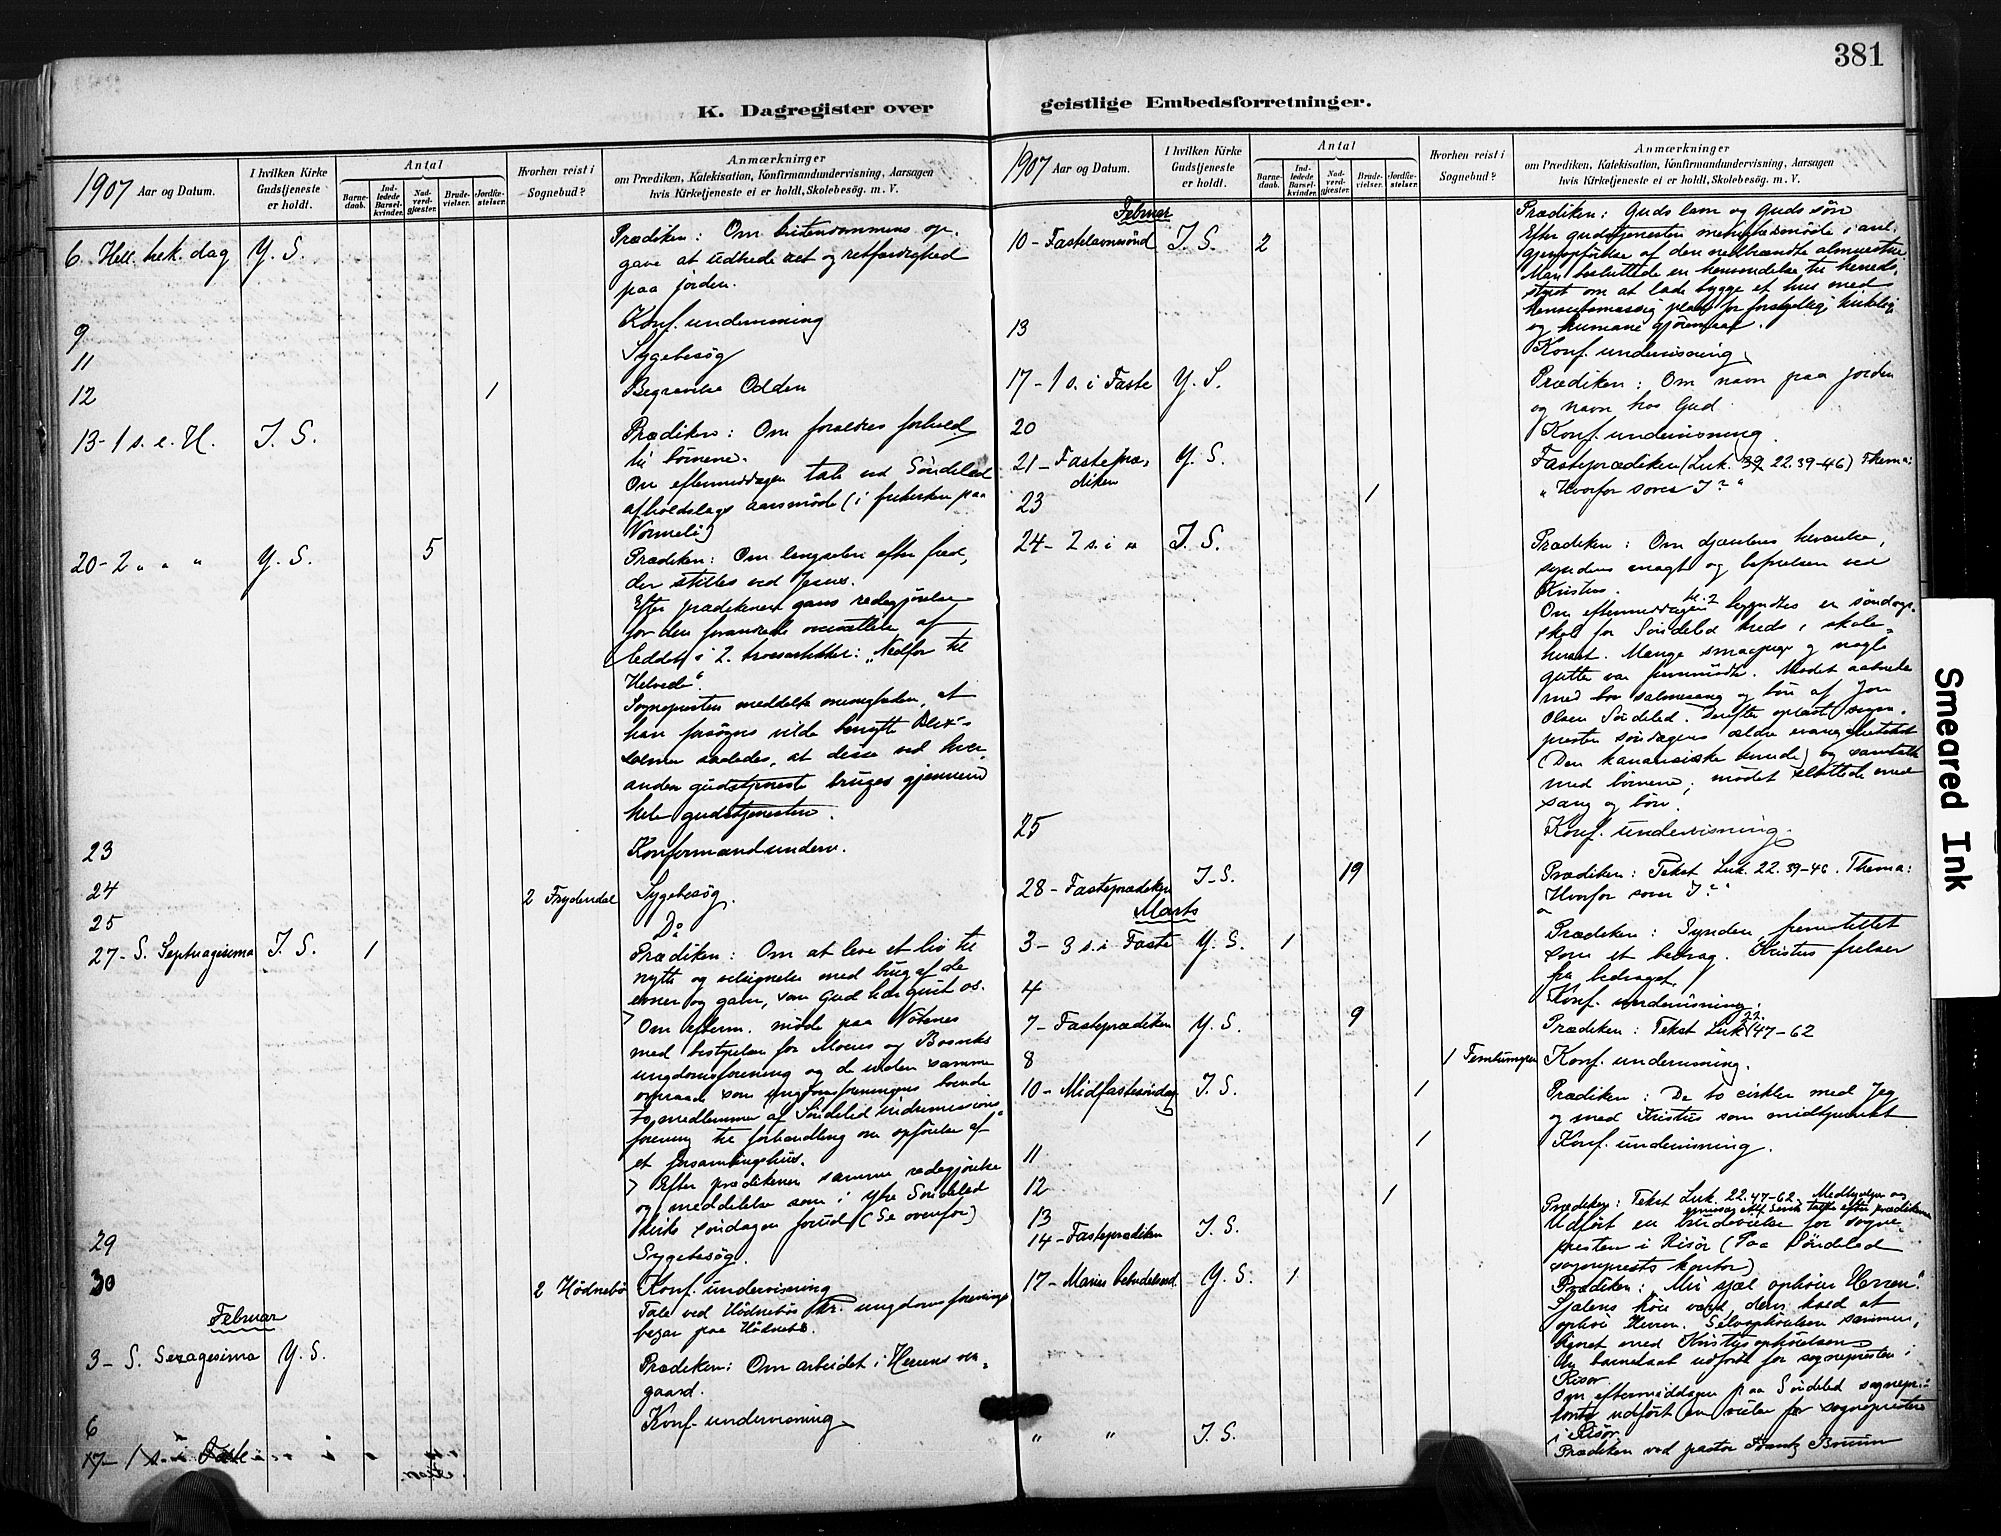 381
K. Dagregister over
geistlige Embedsforretninger.
1907 Aar og Datum.
I hvilken Kirke Gudstjeneste er holdt.
Antal
Barnedaab.
Indledede Barselkvinder.
Nadverdgjæster.
Brudevielser.
Jordfæstelser.
Hvorhen reist i Sognebud?
Anmærkninger
om Prædiken, Katekisation, Konfirmandundervisning, Aarsagen
hvis Kirketjeneste ei er holdt, Skolebesøg. m. V.
6. Hell. trek. dag Y. S. Prædiken: Om kristendommens op-
gave at udbrede ret og retfærdighed
paa jorden.
9 Konf. undervisning
11 Sygebesøg
12 1 Begravelse Odden
13- 1 s. e. H. I. S. Prædiken: Om forældres forhold
til børnene.
Om eftermiddagen tale ved Söndeled
afholdslags aarsmöde (i
20- 2 " " " Y. S. 5 Prædiken: Om længselen efter fred,
der stilles ved Jesus.
Efter prædikenen gaves redegjørelse
for den forandrede oversættelse af
leddet i 2. trosartikkel: "Nedfor til
Helvede".
Sognepresten meddelte menigheden, at
han forsøgsvis vilde benytte Blix's
salmer saaledes, at disse ved hver
anden gudstjeneste bruges gjennem
hele gudstjenesten.
23 Konfirmandunderv.
24 2 Frydendal Sygebesøg.
25 Do
27- S. Septuagesima I. S. 1 Prædiken: Om at leve et liv til
nytte og velsignelse med brug af de
evner og gaver, som Gud har givet os.
Om efterm. møde paa Nötenes
med bestyrelsen for Moens og Bosviks
ungdomsforening og de inden samme
omraade som ungdomsforeningens boende
to medlemmer af Söndeled indremissions
forening til forhandling om opförelse af
et forsamlingshus.
Efter prædikenen samme redegjörelse
og meddelelse som i ytre Söndeled
kirke söndagen forud (Se ovenfor)
29 Sygebesøg.
30 2 Hödnebö Konf. undervisning
Tale ved Hödnebös kr. ungdomsforenings
basar paa Hödnebö.
Februar
3- S. Sexagesima Y. S. Prædiken: Om arbeidet i Herrens vin-
gaard.
6 Konf. undervisning
17- 1 s. i Faste
1907 Aar og Datum.
I hvilken Kirke Gudstjeneste er holdt.
Antal
Barnedaab.
Indledede Barselkvinder.
Nadverdgjæster.
Brudevielser.
Jordfæstelser.
Hvorhen reist i Sognebud?
Anmærkninger
om Prædiken, Katekisation, Konfirmandundervisning, Aarsagen
hvis Kirketjeneste ei er holdt, Skolebesøg. m. V.
Februar
10- Fastelavnssönd I. S. 2 Prædiken: Guds lam og Guds sön
Efter gudstjenesten menighedsmöde i anl.
gjenopförelse af den nedbrændte
Man besluttede en henvendelse til herreds
styret om at lade bygge et hus med
hensigtsmæssig plads for forskjellig kirkelig
og humane gjöremaal.
13 Konf. undervisning
17- 1 s. i Faste Y. S. Prædiken: Om navn paa jorden
og navn hos Gud.
20 Konf. undervisning.
21- Fastepræ-
diken Y. S. Fasteprædiken (Luk. 22.39-46) Thema:
"Hvorfor sover I?"
23 1
24- 2 s. i " I. S. Prædiken: Om djævlens
syndens magt og befrielsen ved
Kristus.
Om eftermiddagen kl. 2 begyndtes en söndags-
skole for Söndeled kreds i skole-
huset. Mange smaapiger og nogle
gutter var fremmödte. Mödet aabnedes
med bön salmesang og bön af Jon
Olsen Söndeled. Derefter oplæste sogne-
presten söndagens ældre evangelietekst
(Den kananæiske kvinde) og samtalte
med börnene; mödet sluttede med
sang og bön.
25 Konf. undervisning.
28- Fasteprædiken I. S. 19 Prædiken: Tekst Luk. 22.39-46. Thema:
Hvorfor sover I?"
Marts
3- 3 s. i Faste Y. S. 1 Prædiken: Synden fremstillet
som et bedrag. Kristus frelser
fra bedraget.
4 Konf. undervisning.
7- Fasteprædiken Y. S. 9 Prædiken: Tekst Luk. 22. 47-62
8 1 Konf. undervisning.
10- Midfastesöndag I. S. 1 Prædiken: De to cirkler med Jeg
og med Kristus som midtpunkt
11 1 Konf. undervisning.
12 1
13
14- Fasteprædiken I. S. Prædiken: Tekst Luk. 22.47-62. Medhjelper og
talte efter prædikenen
Udfört en brudevielse for sogne-
presten i Risör (Paa Söndeled
sogneprests kontor)
17- Mariæ bebudelsesd. Y. S. 1 Prædiken: "Min sjæl ophöier Herren".
Sjælens höie værd, dens kald at
ophöie Herren. Selvophöielsen sammen-
lignet med Kristi ophöielse
En barnedaab udfört for sognepresten i
Risör
Om eftermiddagen paa Söndeled sognepr.
kontor udfört en vielse for sognepresten
i Risör
" " I. S. Prædiken ved pastor Frantz Bruun
Smeared Ink